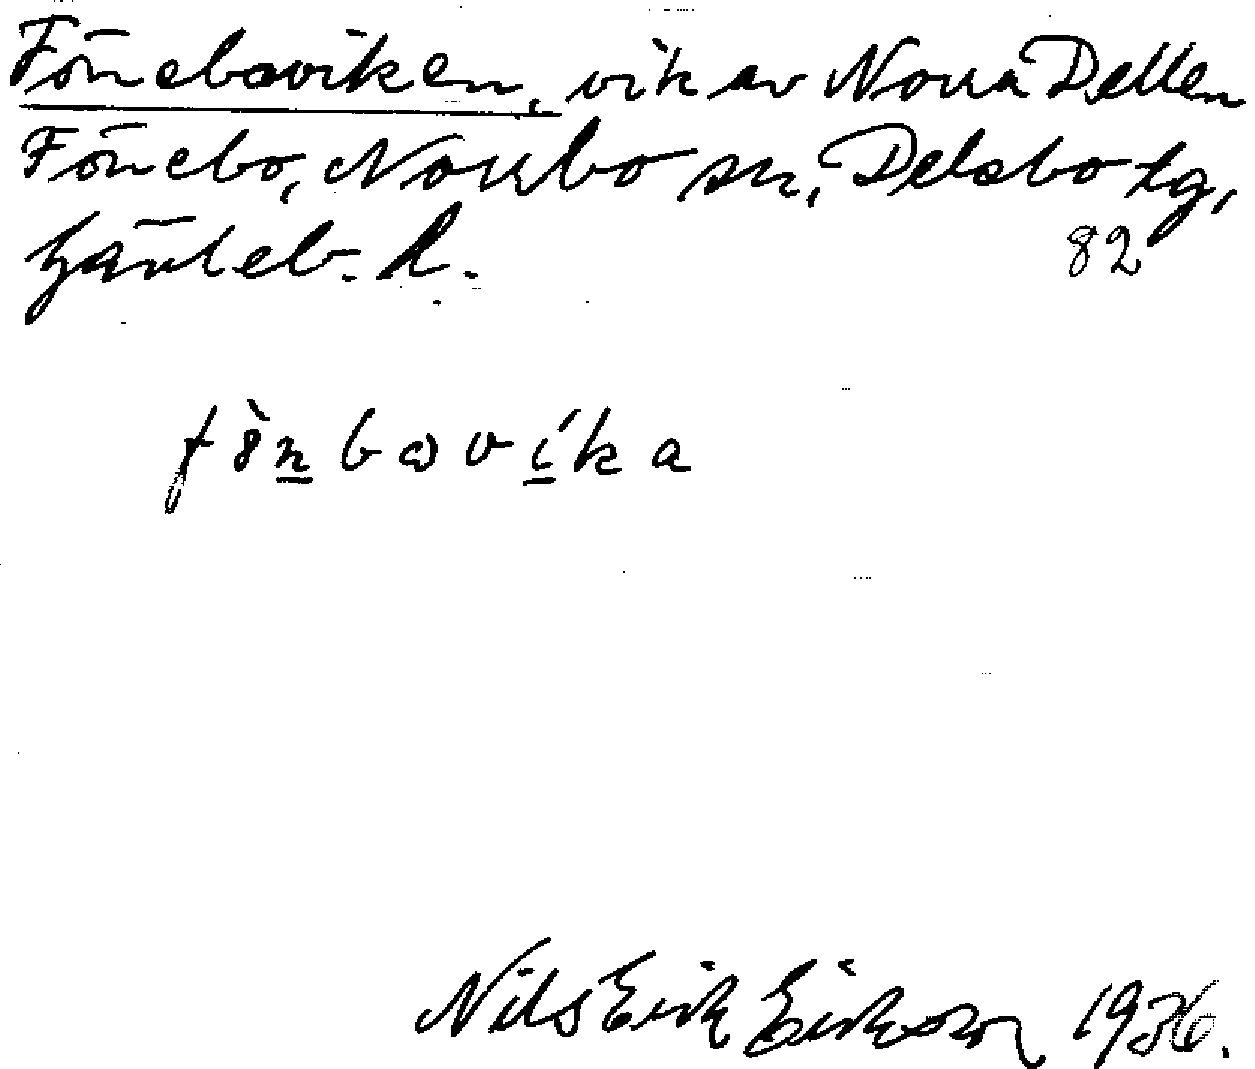 Fönebaviken, vik av Norra Dellen
Fönebo, Norrbo sn, Delsbo tg,
Gävleb. l.
82
fö̀nbavíka
Nils Erik Eriksson 1936.